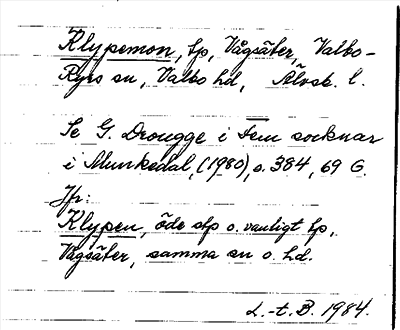 Klypemon, tp, Vågsäter, Valbo-
Ryrs sn, Valbo hd, Älvsb. l.
Se G. Drougge i Fem socknar
i Munkedal, (1980), s. 384, 69 G.
Jfr:
Klypen, öde stp o. vanligt tp,
Vågsäter, samma sn o. hd.
L.-t. B. 1984.